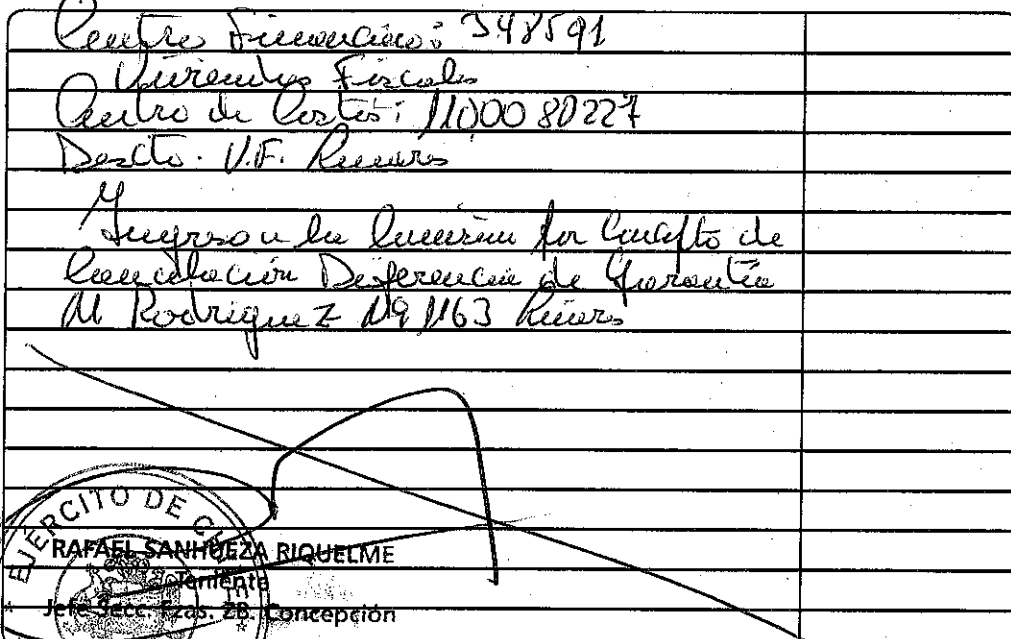 Centro Financiero: 348591
Viviendas Fiscales
Centro de Costos: 1100080227
Descto. V.F.
Ingreso por Concepto de
Cancelación Diferencia de Garantía
M Rodriguez Nº 1163
EJÉRCITO DE
RAFAEL SANHUEZA RIQUELME
Teniente
Jefe Secc. Fzas. ZB. Concepción